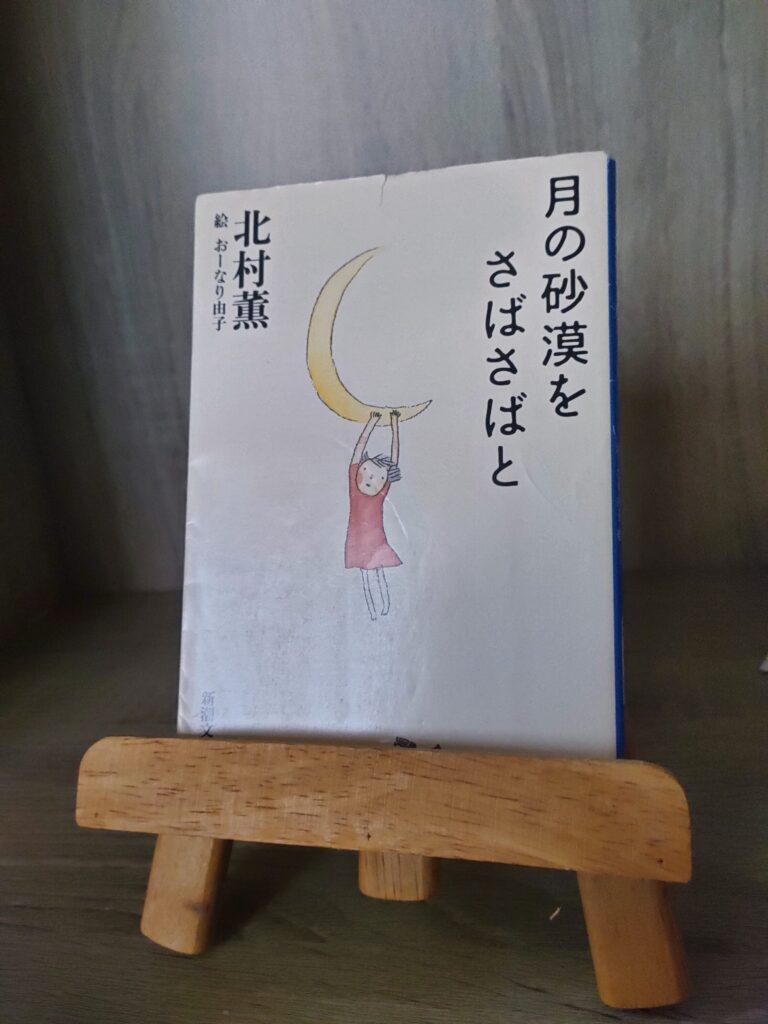 月の砂漠を
さばさばと
北村薫
絵 おーなり由子
新潮文